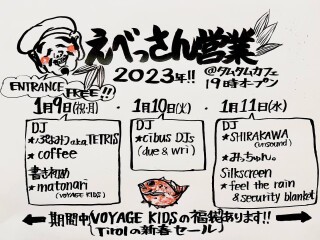 えべっさん営業
2023年!!
@タムタムカフェ
19時オープン
ENTRANCE
FREE!!
1月9日(祝·月)
DJ
a.k.a TETRIS
★coffee
書き初め
★matonari
(VOYAGE KIDS)
1月10日(火)
DJ
★cibus DJs
(due & wri)
1月11日(水)
DJ
★SHIRAKAWA
(unsound)
★みっちゃん。
Silkscreen
★feel the rain
& security blanket
期間中VOYAGE KIDSの福袋あります!!
(Tirolの新春セール)